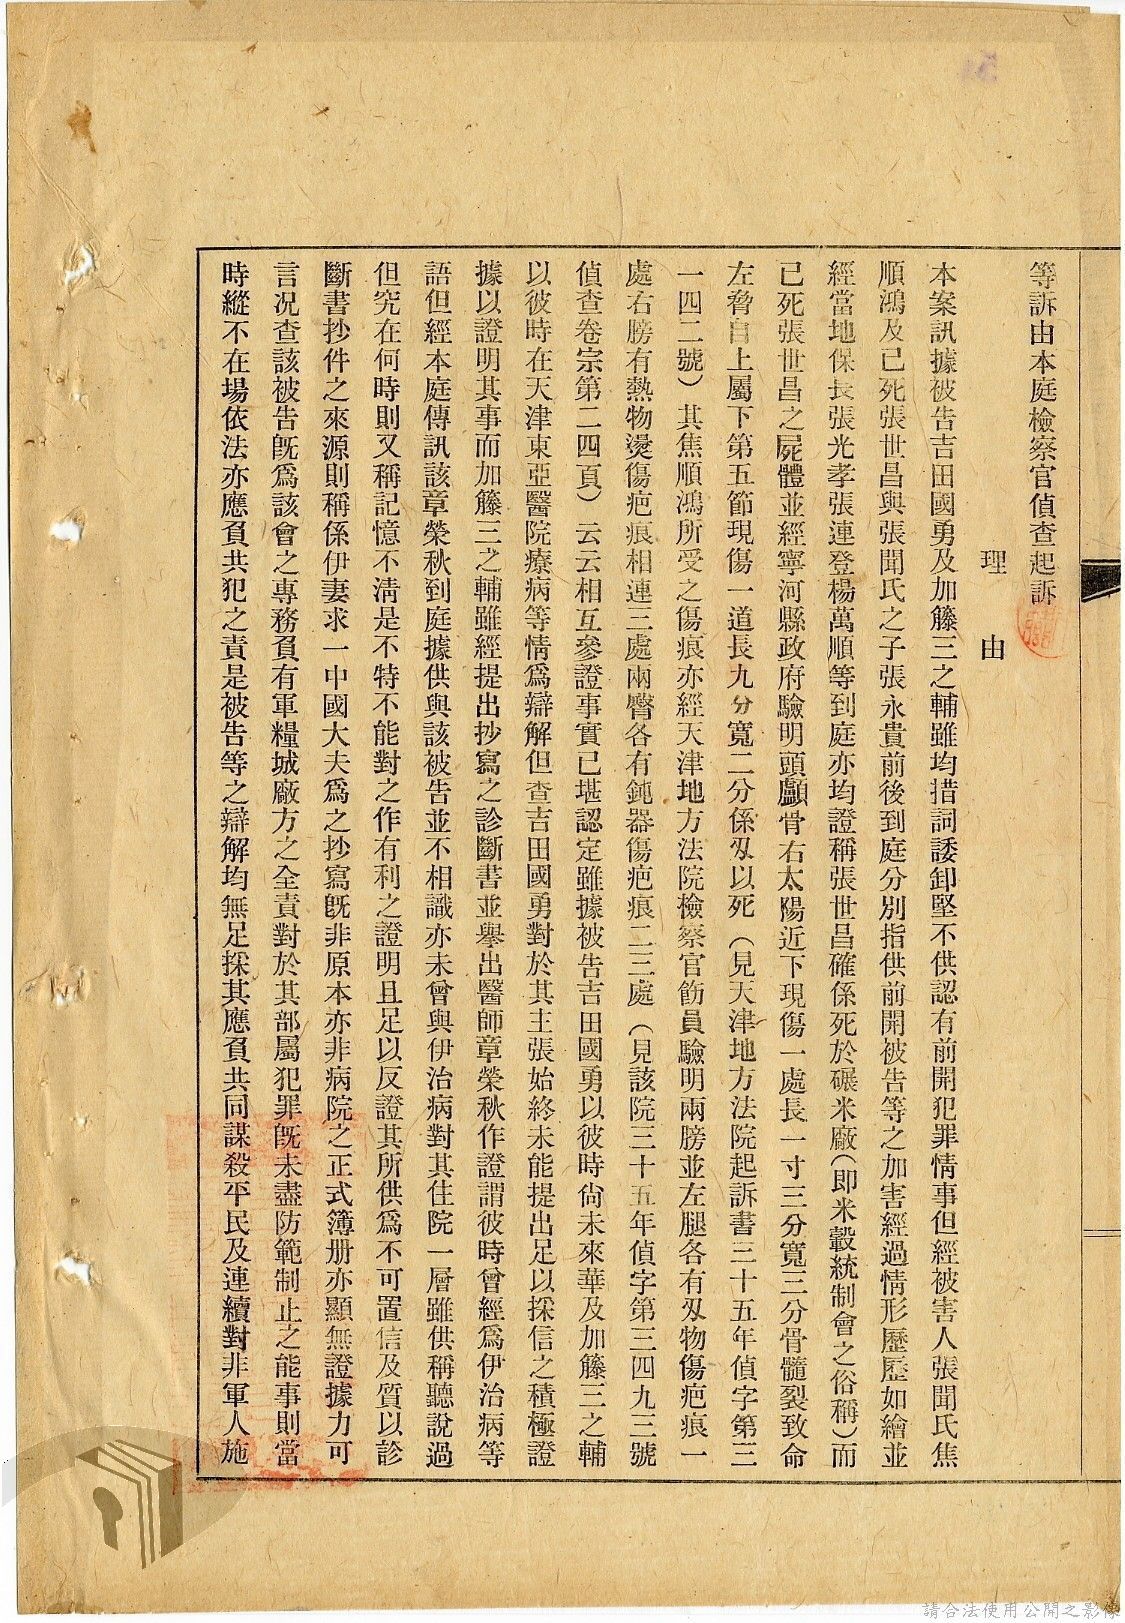 等訴由本庭檢察官偵查起訴
理由
本案訊據被告吉田國勇及加籐三之輔雖均措詞諉卸堅不供認有前開犯罪情事但經被害人張聞氏焦
順鴻及已死張世昌與張聞氏之子張永貴前後到庭分別指供前開被告等之加害經過情形歷歷如繪並
經當地保長張光孝張連登楊萬順等到庭亦均證稱張世昌確係死於碾米廠(即米穀統制會之俗稱)而
已死張世昌之屍體並經寧河縣政府驗明頭顱骨右太陽近下現傷一處長一寸三分寬三分骨髓裂致命
左脅自上屬下第五節現傷一道長九分寬二分係刄以死(見天津地方法院起訴書三十五年偵字第三
一四二號)其焦順鴻所受之傷痕亦經天津地方法院檢察官飭員驗明兩膀並左腿各有刄物傷疤痕一
處右膀有熱物燙傷疤痕相連三處兩臀各有鈍器傷疤痕二三處(見該院三十五年偵字第三四九三號
偵查卷宗第二四頁)云云相互參證事實已堪認定雖據被告吉田國勇以彼時尙未來華及加籐三之輔
以彼時在天津東亞醫院療病等情爲辯解但查吉田國勇對於其主張始終未能提出足以採信之積極證
據以證明其事而加籐三之輔雖經提出抄寫之診斷書並舉出醫師章榮秋作證謂彼時曾經爲伊治病等
語但經本庭傳訊該章榮秋到庭據供與該被告並不相識亦未曾與伊治病對其住院一層雖供稱聽說過
但究在何時則又稱記憶不淸是不特不能對之作有利之證明且足以反證其所供爲不可置信及質以診
斷書抄件之來源則稱係伊妻求一中國大夫爲之抄寫旣非原本亦非病院之正式簿册亦顯無證據力可
言況查該被告旣爲該會之專務負有軍糧城廠方之全責對於其部屬犯罪旣未盡防範制止之能事則當
時縱不在場依法亦應負共犯之責是被告等之辯解均無足採其應負共同謀殺平民及連續對非軍人施
請合法使用公開之影像